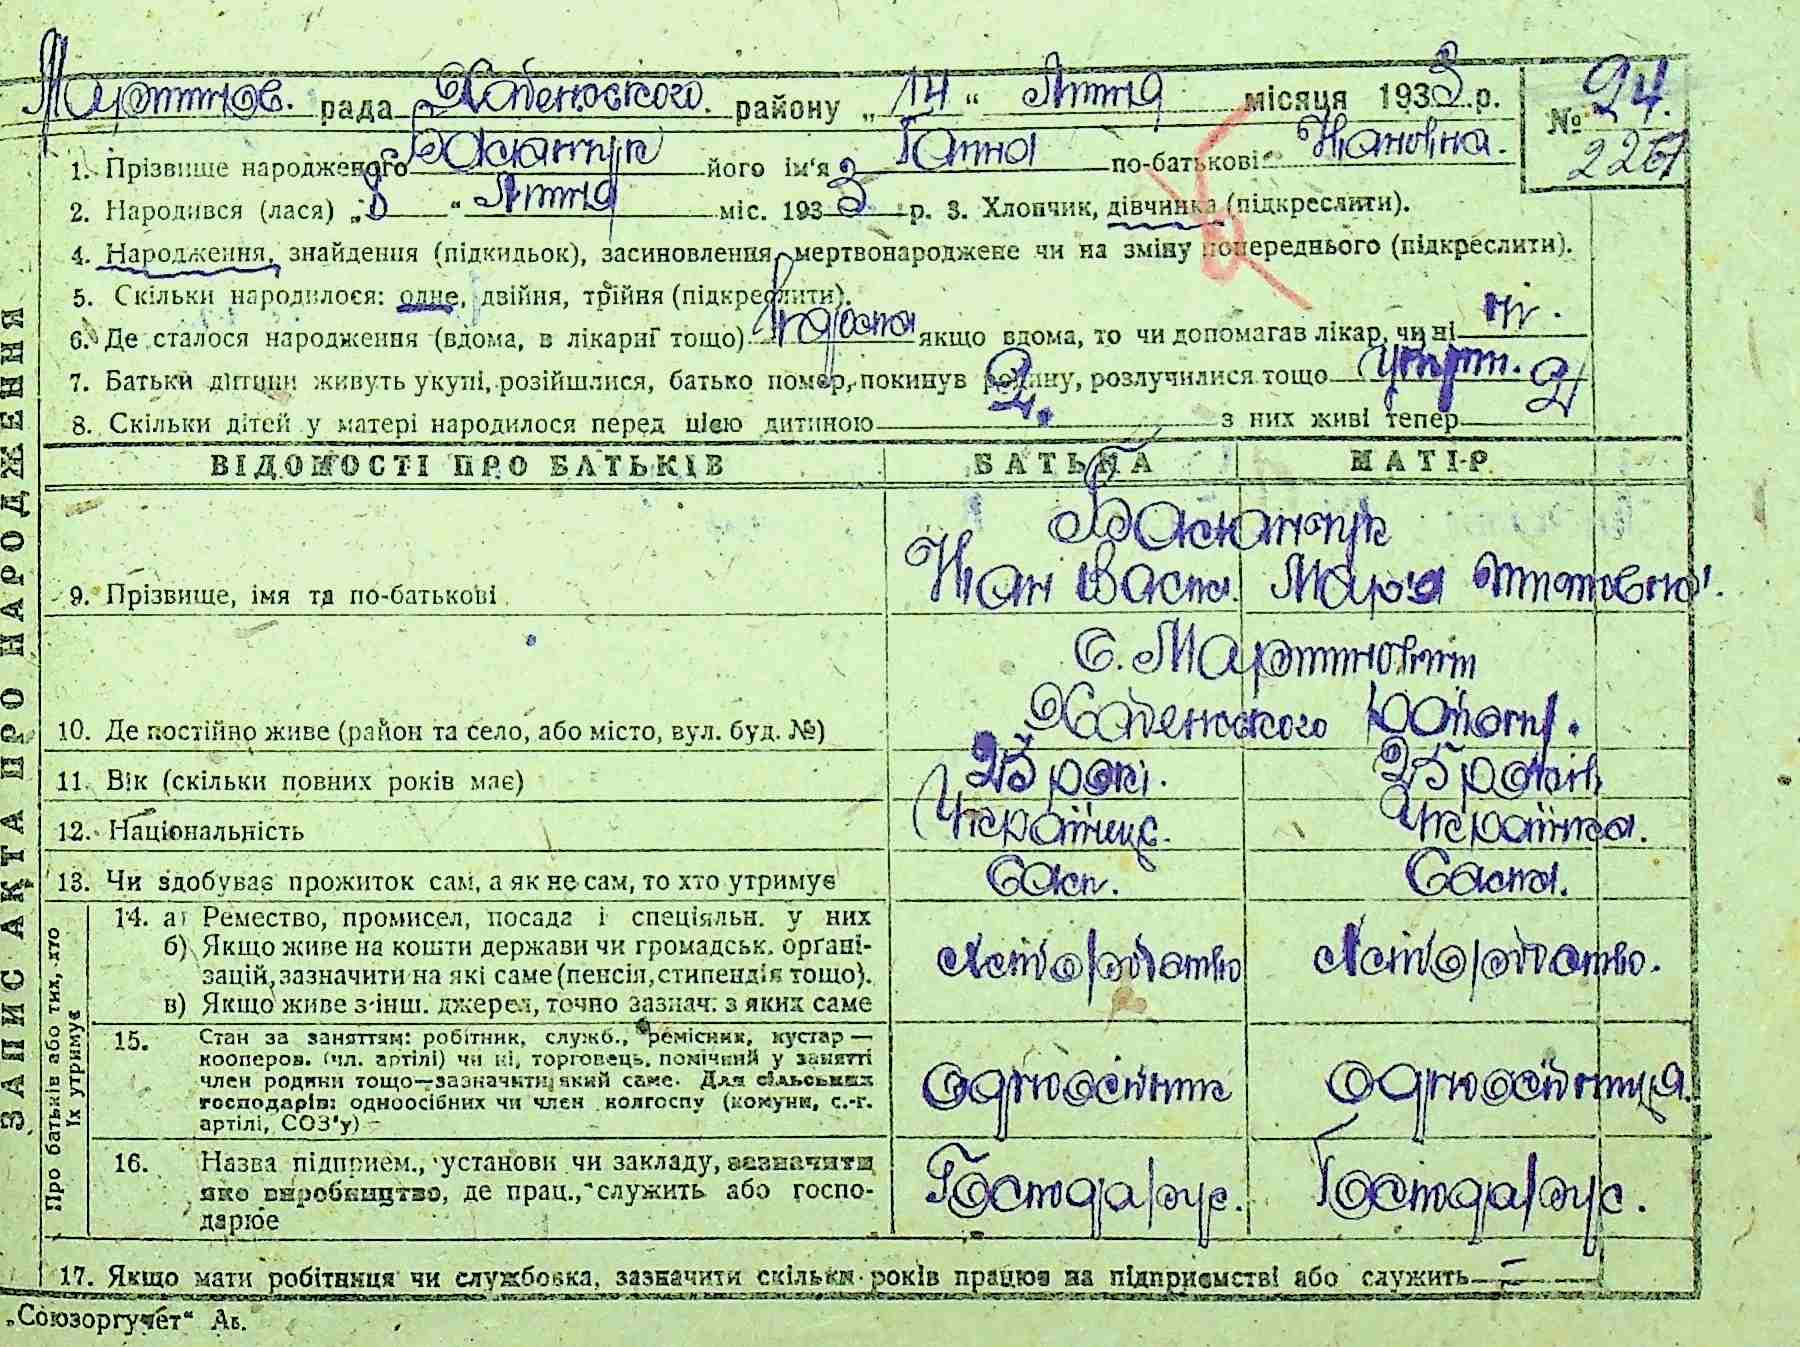 Мартинов. рада Хабенського. району „14“ Липня місяця 1933 р. № 24.
2267
1. Прізвище народженого Басюанчук його ім'я Ганна по-батькові Івановна.
2. Народився (лася) „8“ Липня міс. 1933 р. 3. Хлопчик, дівчинка (підкреслити).
4. Народження, знайдення (підкидьок), засиновлення, мертвонароджене чи на зміну попереднього (підкреслити).
5. Скільки народилося: одне, двійня, трійня (підкреслити).
6. Де сталося народження (вдома, в лікарні тощо) вдома якщо вдома, то чи допомагав лікар, чи ні ні.
7. Батьки дитини живуть укупі, розійшлися, батько помер, покинув родину, розлучилися тощо
8. Скільки дітей у матері народилося перед цією дитиною 2. з них живі тепер 2
ВІДОМОСТІ ПРО БАТЬКІВ БАТЬКА МАТІР
9. Прізвище, імя та по-батькові
Іван Васил. Мар'я
10. Де постійно живе (район та село, або місто, вул. буд. №)
С. Мартинович
Хабенського району.
11. Вік (скільки повних років має) 25 рокі. 25 років
12. Національність Українець. Українка.
13. Чи здобуває прожиток сам, а як не сам, то хто утримує Сам. Сама.
14. а) Ремество, промисел, посада і спеціяльн. у них
б) Якщо живе на кошти держави чи громадськ. органі-
зацій, зазначити на які саме (пенсія, стипендія тощо).
в) Якщо живе з інш. джерел, точно зазнач. з яких саме
хліборобство хліборобство.
15. Стан за заняттям: робітник, служб., ремісник, кустар —
кооперов. (чл. артілі) чи ні, торговець, помічний у занятті
член родини тощо—зазначити, який саме. Для сільських
господарів: одноосібних чи член колгоспу (комуни, с.-г.
артілі, СОЗ'у) –
одноосібник одноосібниця.
16. Назва підприєм., установи чи закладу, зазначити
яке виробництво, де прац., служить або госпо-
дарює
Господарує. Господарує.
17. Якщо мати робітниця чи службовка, зазначити скільки років працює на підприємстві або служить –
ЗАПИС АКТА ПРО НАРОДЖЕННЯ
Про батьків або тих, хто
їх утримує
„Союзоргучёт“ Ав.